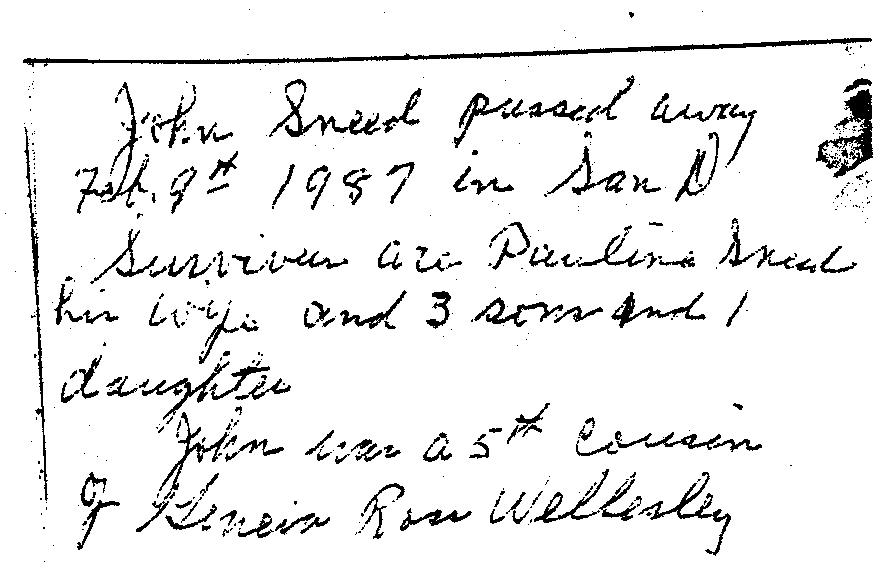 John Sneed passed away
Feb. 9th 1987 in San D
Survivors are Pauline Sneed
his wife and 3 sons and 1
daughter
John was a 5th Cousin
of Rose Wellesley